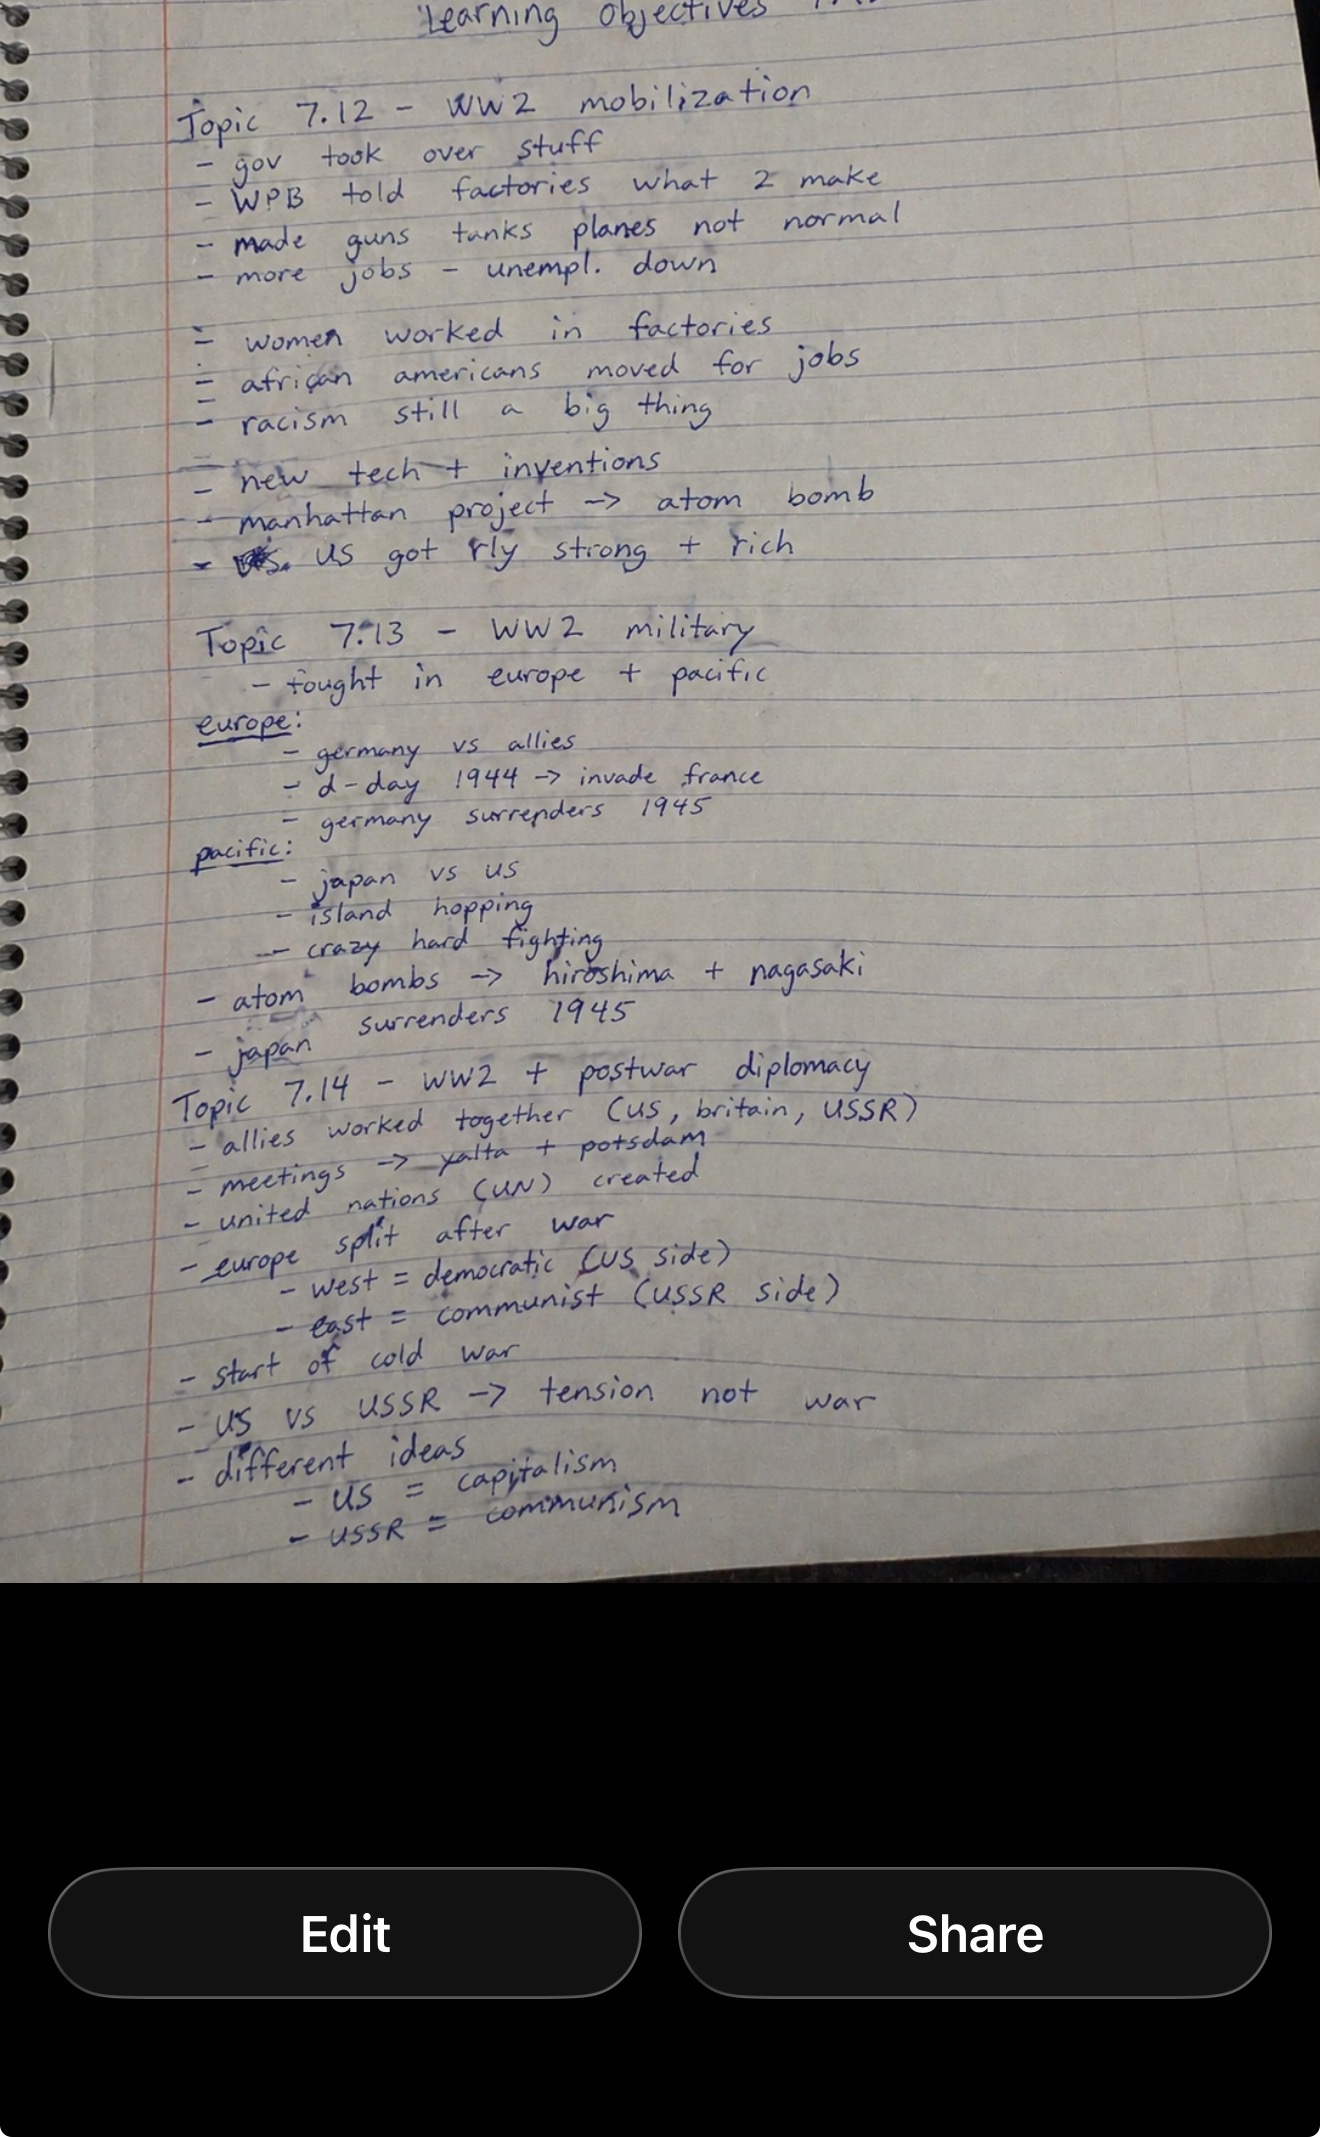 Learning Objectives
Topic 7.12 - WW2 mobilization
- gov took over stuff
- WPB told factories what 2 make
- made guns tanks planes not normal
- more jobs - unempl. down
- women worked in factories
- african americans moved for jobs
- racism still a big thing
- new tech + inventions
- manhattan project -> atom bomb
- US got rly strong + rich
Topic 7.13 - WW2 military
- fought in europe + pacific
europe:
- germany vs allies
- d-day 1944 -> invade france
- germany surrenders 1945
pacific:
- japan vs us
- island hopping
- crazy hard fighting
- atom bombs -> hiroshima + nagasaki
- japan surrenders 1945
Topic 7.14 - WW2 + postwar diplomacy
- allies worked together (US, britain, USSR)
- meetings -> yalta + potsdam
- united nations (UN) created
- europe split after war
- west = democratic (US side)
- east = communist (USSR side)
- start of cold war
- US vs USSR -> tension not war
- different ideas
- US = capitalism
- USSR = communism
Edit
Share